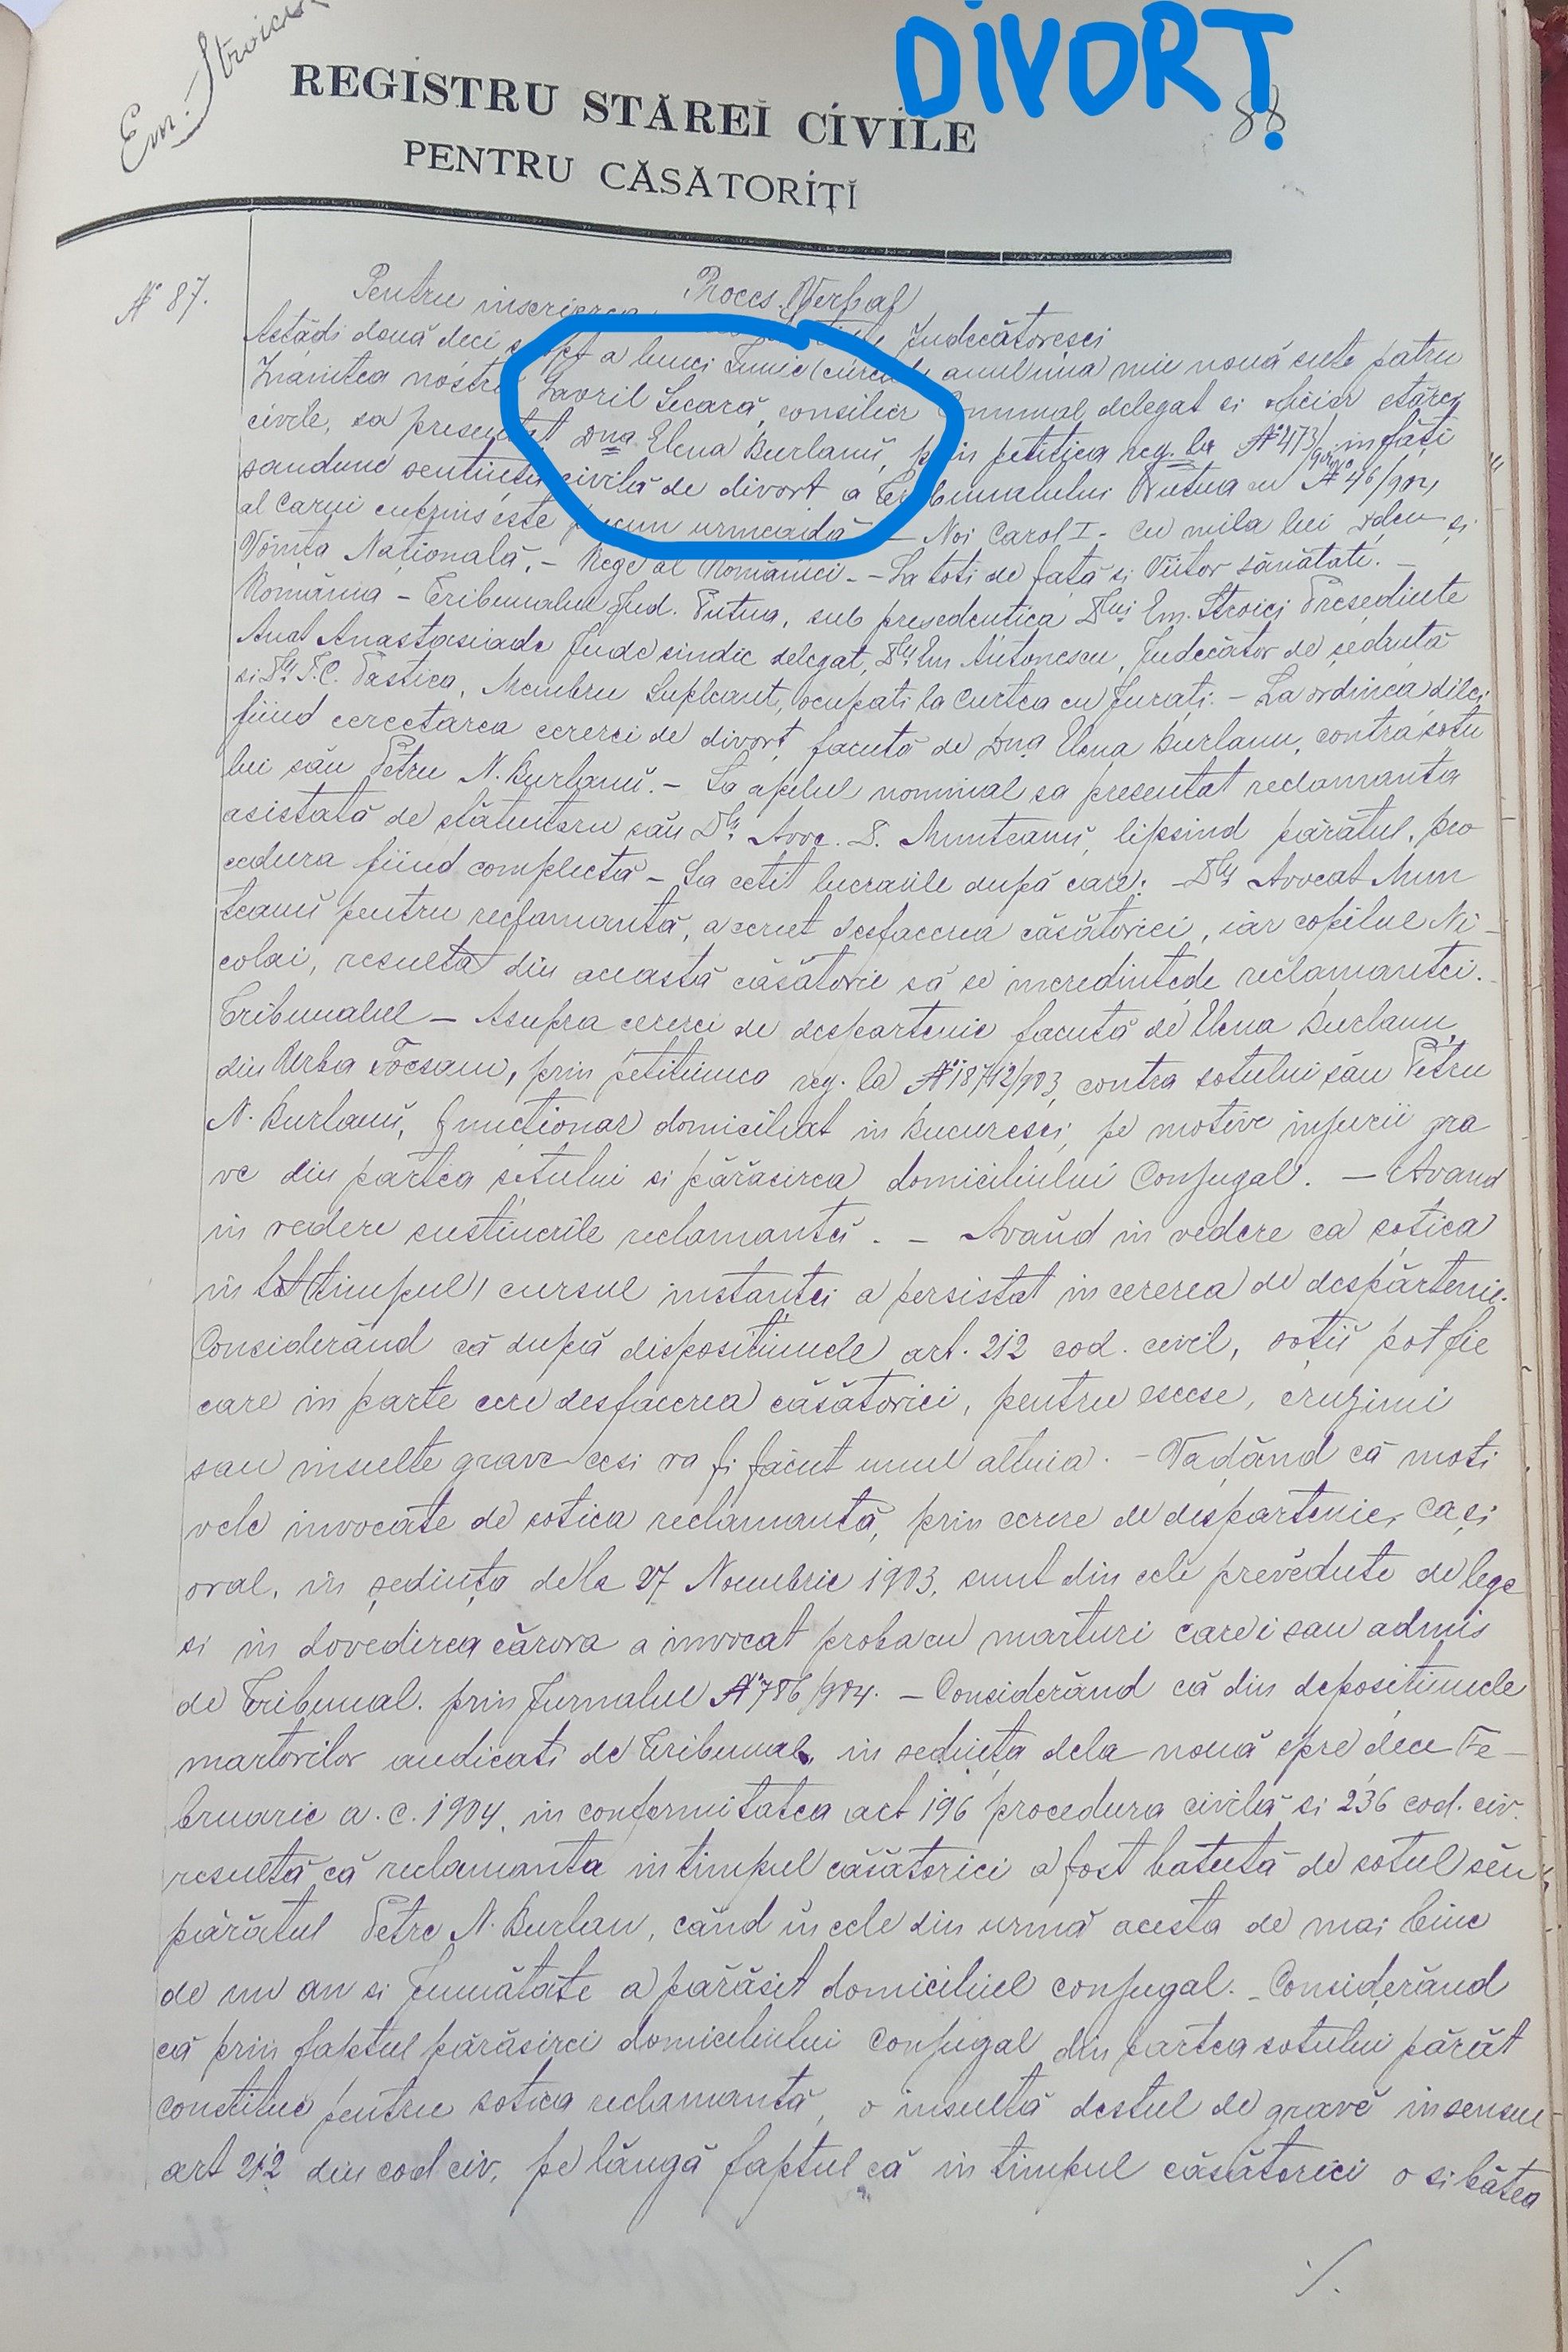 DIVORȚ
Em. Stroici
88
REGISTRU STĂREĬ CIVILE
PENTRU CĂSĂTORIȚĬ
№ 87.
Proces Verbal
Pentru inscrierea Judecătoresci
Astădi două deci a lunei Iunie curent anul una mie nouă sute patru
Inaintea nostră Gavril Secară, consilier Comunal delegat si oficier stărei
civile, sa presentat Dna Elena Burlanŭ, prin petitia reg. la № 473/904 infăți
sandune sentința civilă de divort a Tribunalului Putna cu № 46/904,
al Carui cuprins este precum urmeadă — Noi Carol I - cu mila lui Ddeu și
Voința Națională, - Rege al Romăniei - - La toti de față si Viitor sănătate. -
Romănia - Tribunalul Jud. Putna, sub presedentia Dlui Em. Stroici Presedinte
Anat Anastasiade Jude sindic delegat, Dl. Em Antonescu, Judecător de ședință
si Dl. T.C. Pastica, Membru Supleant, ocupati la Curtea cu Jurați. - La ordinea dilei
fiind cercetarea cererei de divorț, facută de Dna Elena Burlanu, contra sotu
lui său Petru N. Burlanŭ. - La apelul nominal sa presentat reclamanta
asistată de Dl. Avoc. D. Munteanŭ, lipsind părătul, pro
cedura fiind complectă - Sa cetit lucrările după care: - Dl. Avocat Mun
teanŭ pentru reclamantă, a cerut desfacerea căsătoriei, iar copilul Ni-
colai, resultat din aceasta căsătorie să se incredintede reclamantei.
Tribunalul - Asupra cererei de despartenie facută de Elena Burlanu
din Urba Focsani, prin petitiunea reg. la № 18742/903, contra sotului său Petru
N. Burlanŭ, functionar domiciliat in Bucuresci, pe motive injurii gra
ve din partea sotului si părăsirea domiciliului Conjugal. - Avand
in vedere sustinerile reclamantei. - Avănd in vedere ca soția
in tot timpul, cursul instantei a persistat in cererea de despărtenie.
Considerănd că după dispositiunele art. 212 cod. civil, sotii pot fie
care in parte cere desfacerea căsătoriei, pentru escese, cruzimi
sau insulte grave cesi va fi făcut unul altuia. - Vădănd că moti
vele invocate de sotia reclamantă, prin cerere de despartenie, ca și
oral, in ședința dela 27 Noembrie 1903, sunt din cele prevĕdute de lege
si in dovedirea cărora a invocat proba cu marturi care i sau admis
de Tribunal. prin Jurnalul № 786/904. - Considerănd că din depositiunele
martorilor audicati de Tribunal, in sedința dela nouă spre dece Fe-
bruarie a. c. 1904, in conformitatea art 196 procedura civilă si 236 cod. civ.
resultă că reclamanta in timpul căsătoriei a fost batută de sotul sĕu,
părătul Petre N. Burlan, cănd in cele din urmă acesta de mai bine
de un an si jumătate a părăsit domiciliul conjugal. - Considerănd
că prin faptul părăsirei domiciliului Conjugal din partea sotului părăt
constitue pentru sotia reclamantă, o insultă destul de gravĕ in sensul
art 212 din cod civ, pe lăngă faptul că in timpul căsătoriei o si bătea
./.